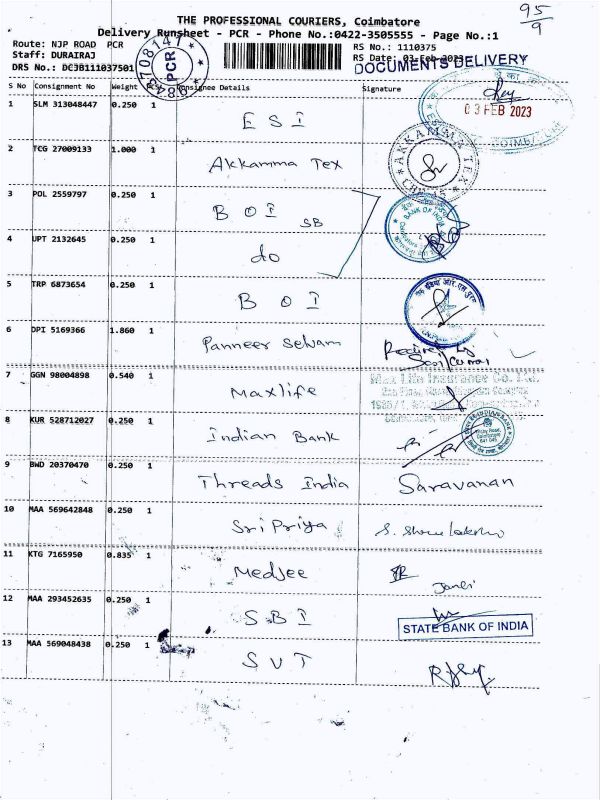 95
9
THE PROFESSIONAL COURIERS, Coimbatore
Delivery Runsheet - PCR - Phone No.:0422-3505555 - Page No.:1
Route: NJP ROAD PCR
RS No.: 1110375
Staff: DURAIRAJ
RS Date: 03-Feb-2023
DRS No.: DCJB111037501
DOCUMENTS DELIVERY
PCR
S No Consignment No Weight Consignee Details Signature
1 SLM 313048447 0.250 1 ESI
03 FEB 2023
2 TCG 27009133 1.000 1 Akkamma Tex
AKKAMMA TEX
3 POL 2559797 0.250 1 BOI SB
BANK OF INDIA
4 UPT 2132645 0.250 1 do
5 TRP 6873654 0.250 1 BOI
6 DPI 5169366 1.860 1 Panneer Selvam
Received by
7 GGN 98004898 0.540 1 Maxlife
Max Life Insurance Co. Ltd.
8 KUR 528712027 0.250 1 Indian Bank
INDIAN BANK
9 BWD 20370470 0.250 1 Threads India Saravanan
10 MAA 569642848 0.250 1 Sri Priya
11 KTG 7165950 0.835 1 Medjee
12 MAA 293452635 0.250 1 SBI
STATE BANK OF INDIA
13 MAA 569048438 0.250 1 SVT